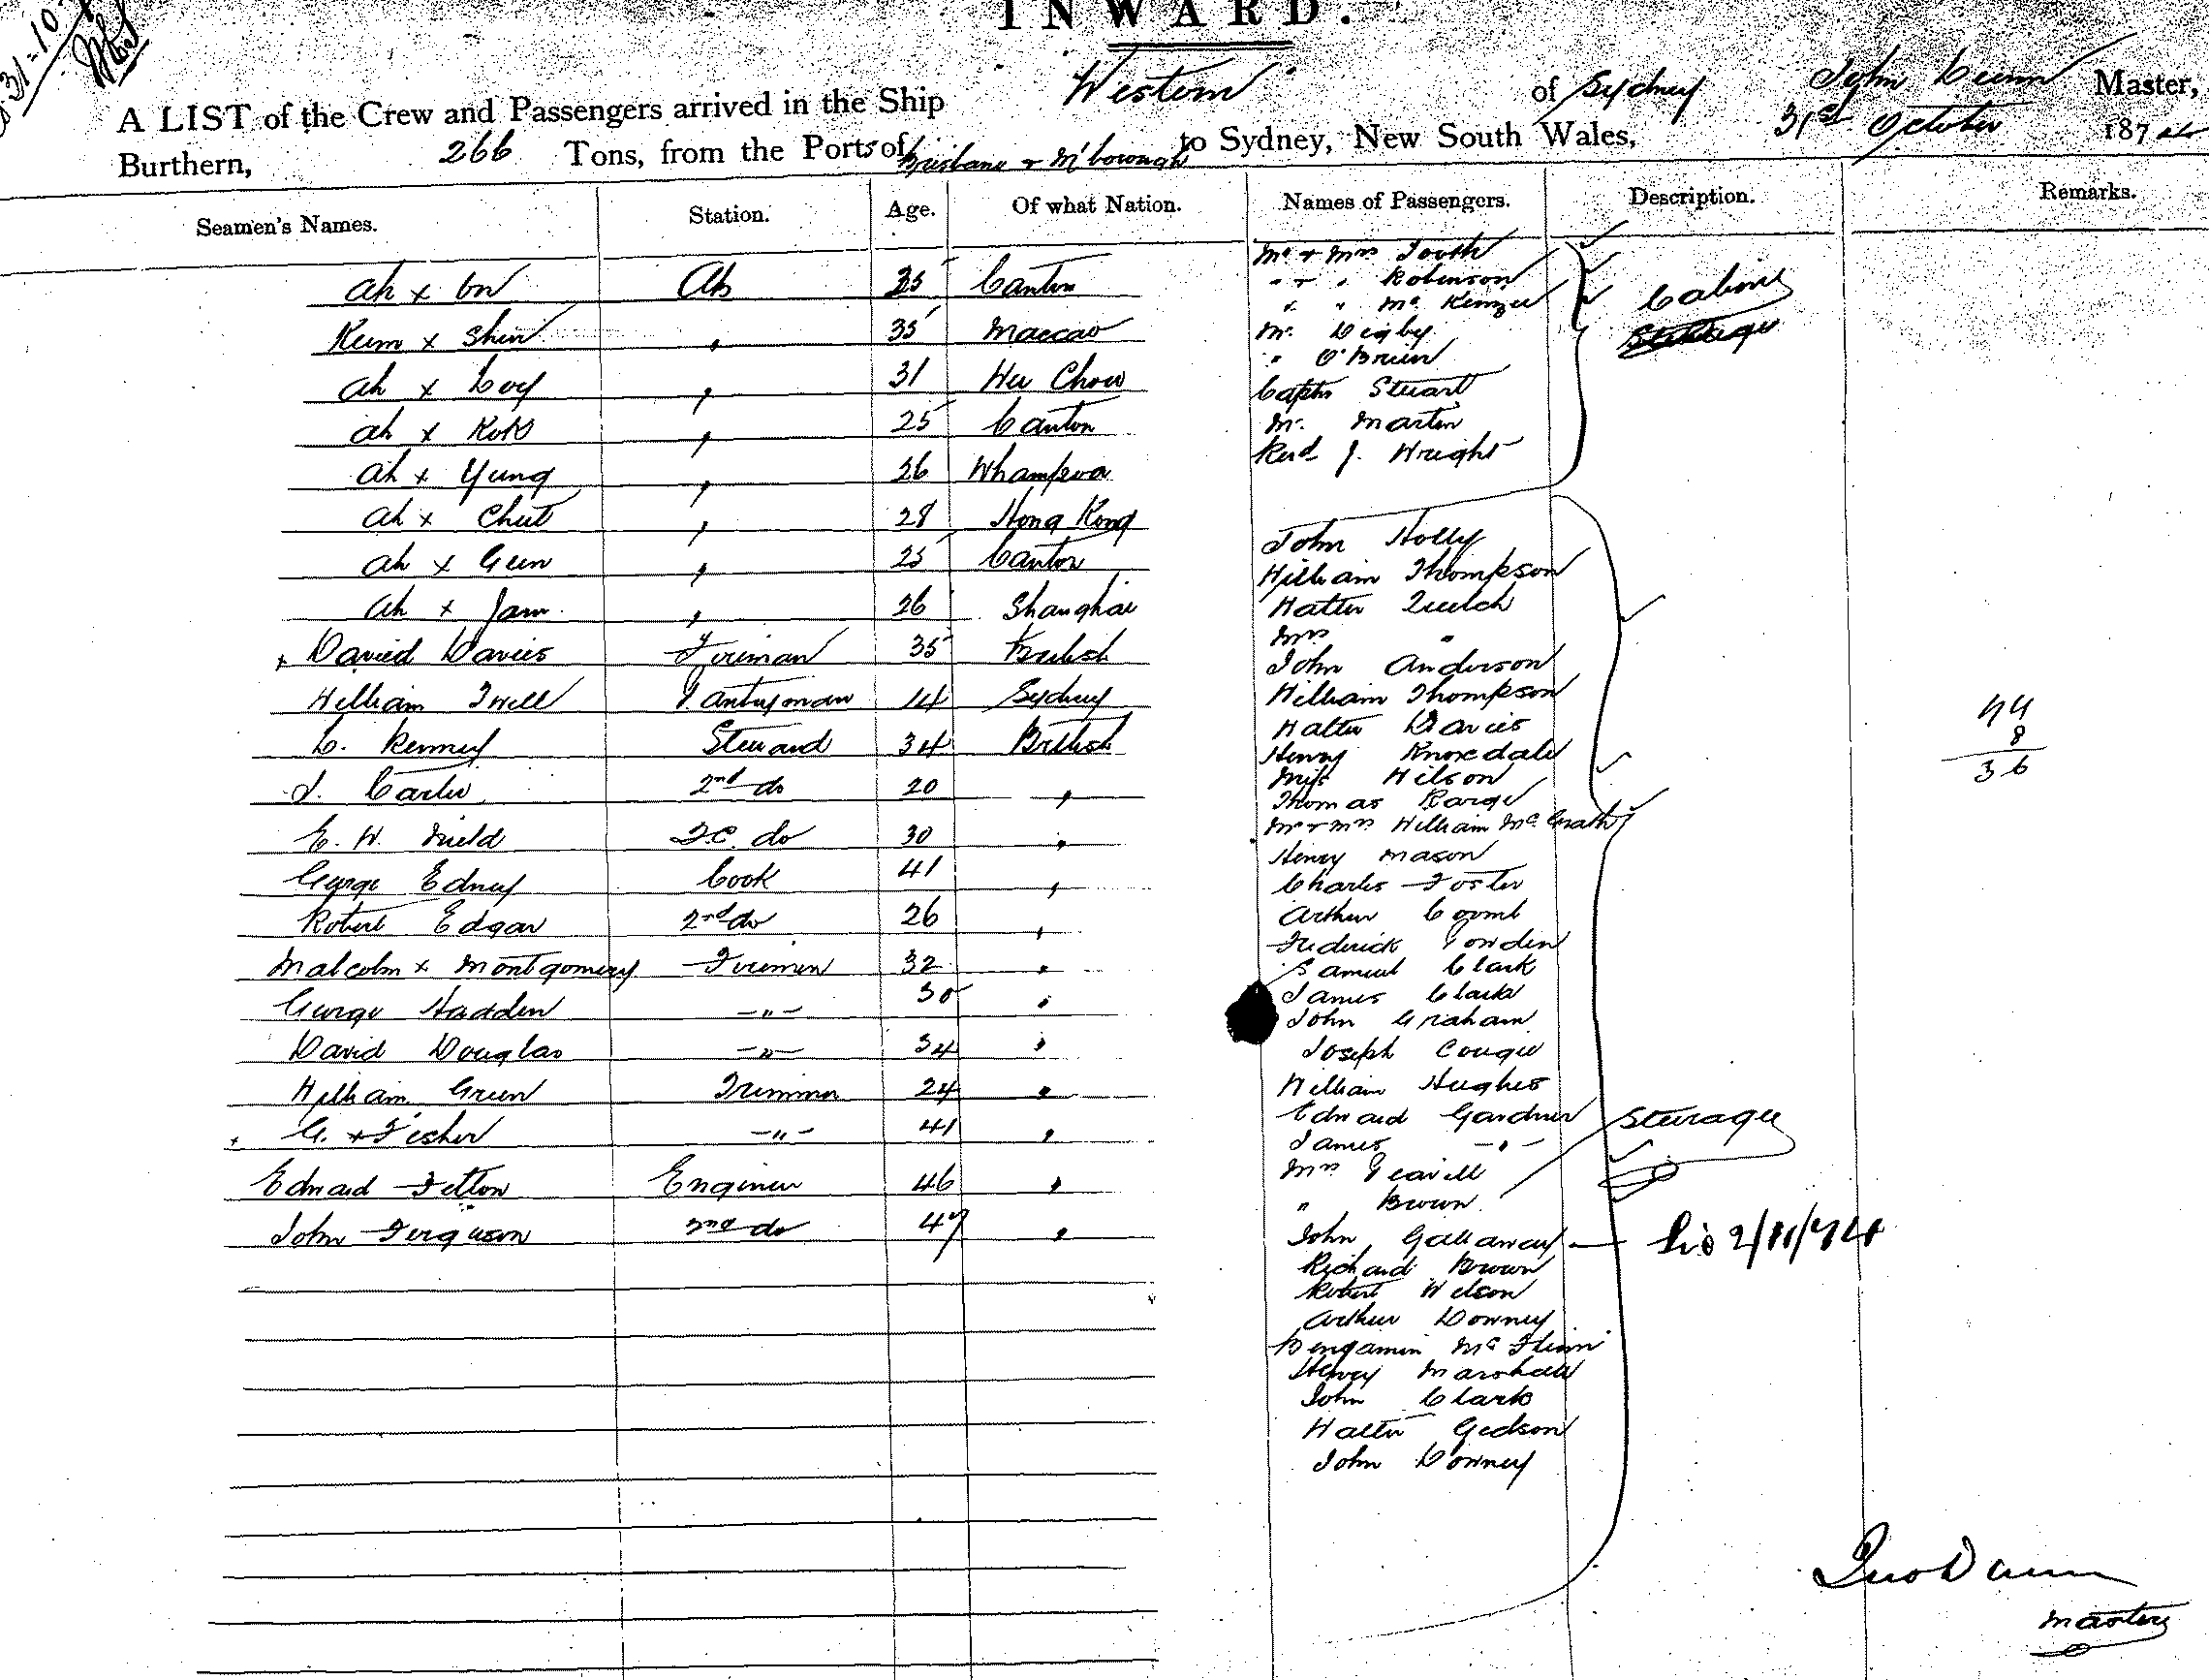 INWARD.
31-10
A LIST of the Crew and Passengers arrived in the Ship Western of Sydney John Master,
Burthern, 266 Tons, from the Ports of Brisbane & M'borough to Sydney, New South Wales, 31st October 1874
Seamen's Names. Station. Age. Of what Nation. Names of Passengers. Description. Remarks.
Ah x AB 25 Canton
Kum x Shin " 35 Maccao
Ah x Loy " 31 Chow
Ah x Kok " 25 Canton
Ah x Yung " 26 Whampoa
Ah x Chut " 28 Hong Kong
Ah x Gun " 25 Canton
Ah x Jam. " 26 Shanghai
x David Davies Fireman 35 British
William Twell Pantryman 14 Sydney
Kenney Steward 34 British
J. Carter 2nd do 20 "
E. W. Nield F.C. do 30 "
George Edney Cook 41 "
Robert Edgar 2nd do 26 "
Malcolm x Montgomery Firemen 32 "
George Hadden -"- 30 "
David Douglas -"- 34 "
William Green Trimmer 24 "
x G. x Fisher -"- 41 "
Edward Felton Engineer 46 "
John Ferguson 2nd do 47 "
Mr & Mrs Tooth
" & " Robinson
" " McKenzie
Mr. Digby
" O'Brien
Captn Stuart
Mr. Martin
Revd J. Wright
Cabin
Steerage
John Holly
William Thompson
Walter Quelch
Mrs "
John Anderson
William Thompson
Walter Davies
Henry Knoxdale
Miss Wilson
Thomas
Mr & Mrs William McGrath
Henry Mason
Charles Foster
Arthur Coomb
Frederick Powden
Samuel Clark
James Clark
John Graham
Joseph
William Hughes
Edward Gardner
James -"-
Mrs
" Brown
Steerage
John Gallaway — 2/11/74
Richard Brown
Robert Wilson
Arthur Downey
Benjamin McFlinn
Henry Marshall
John Clark
Walter Gedson
John Downey
44
8
36
Jno
Master